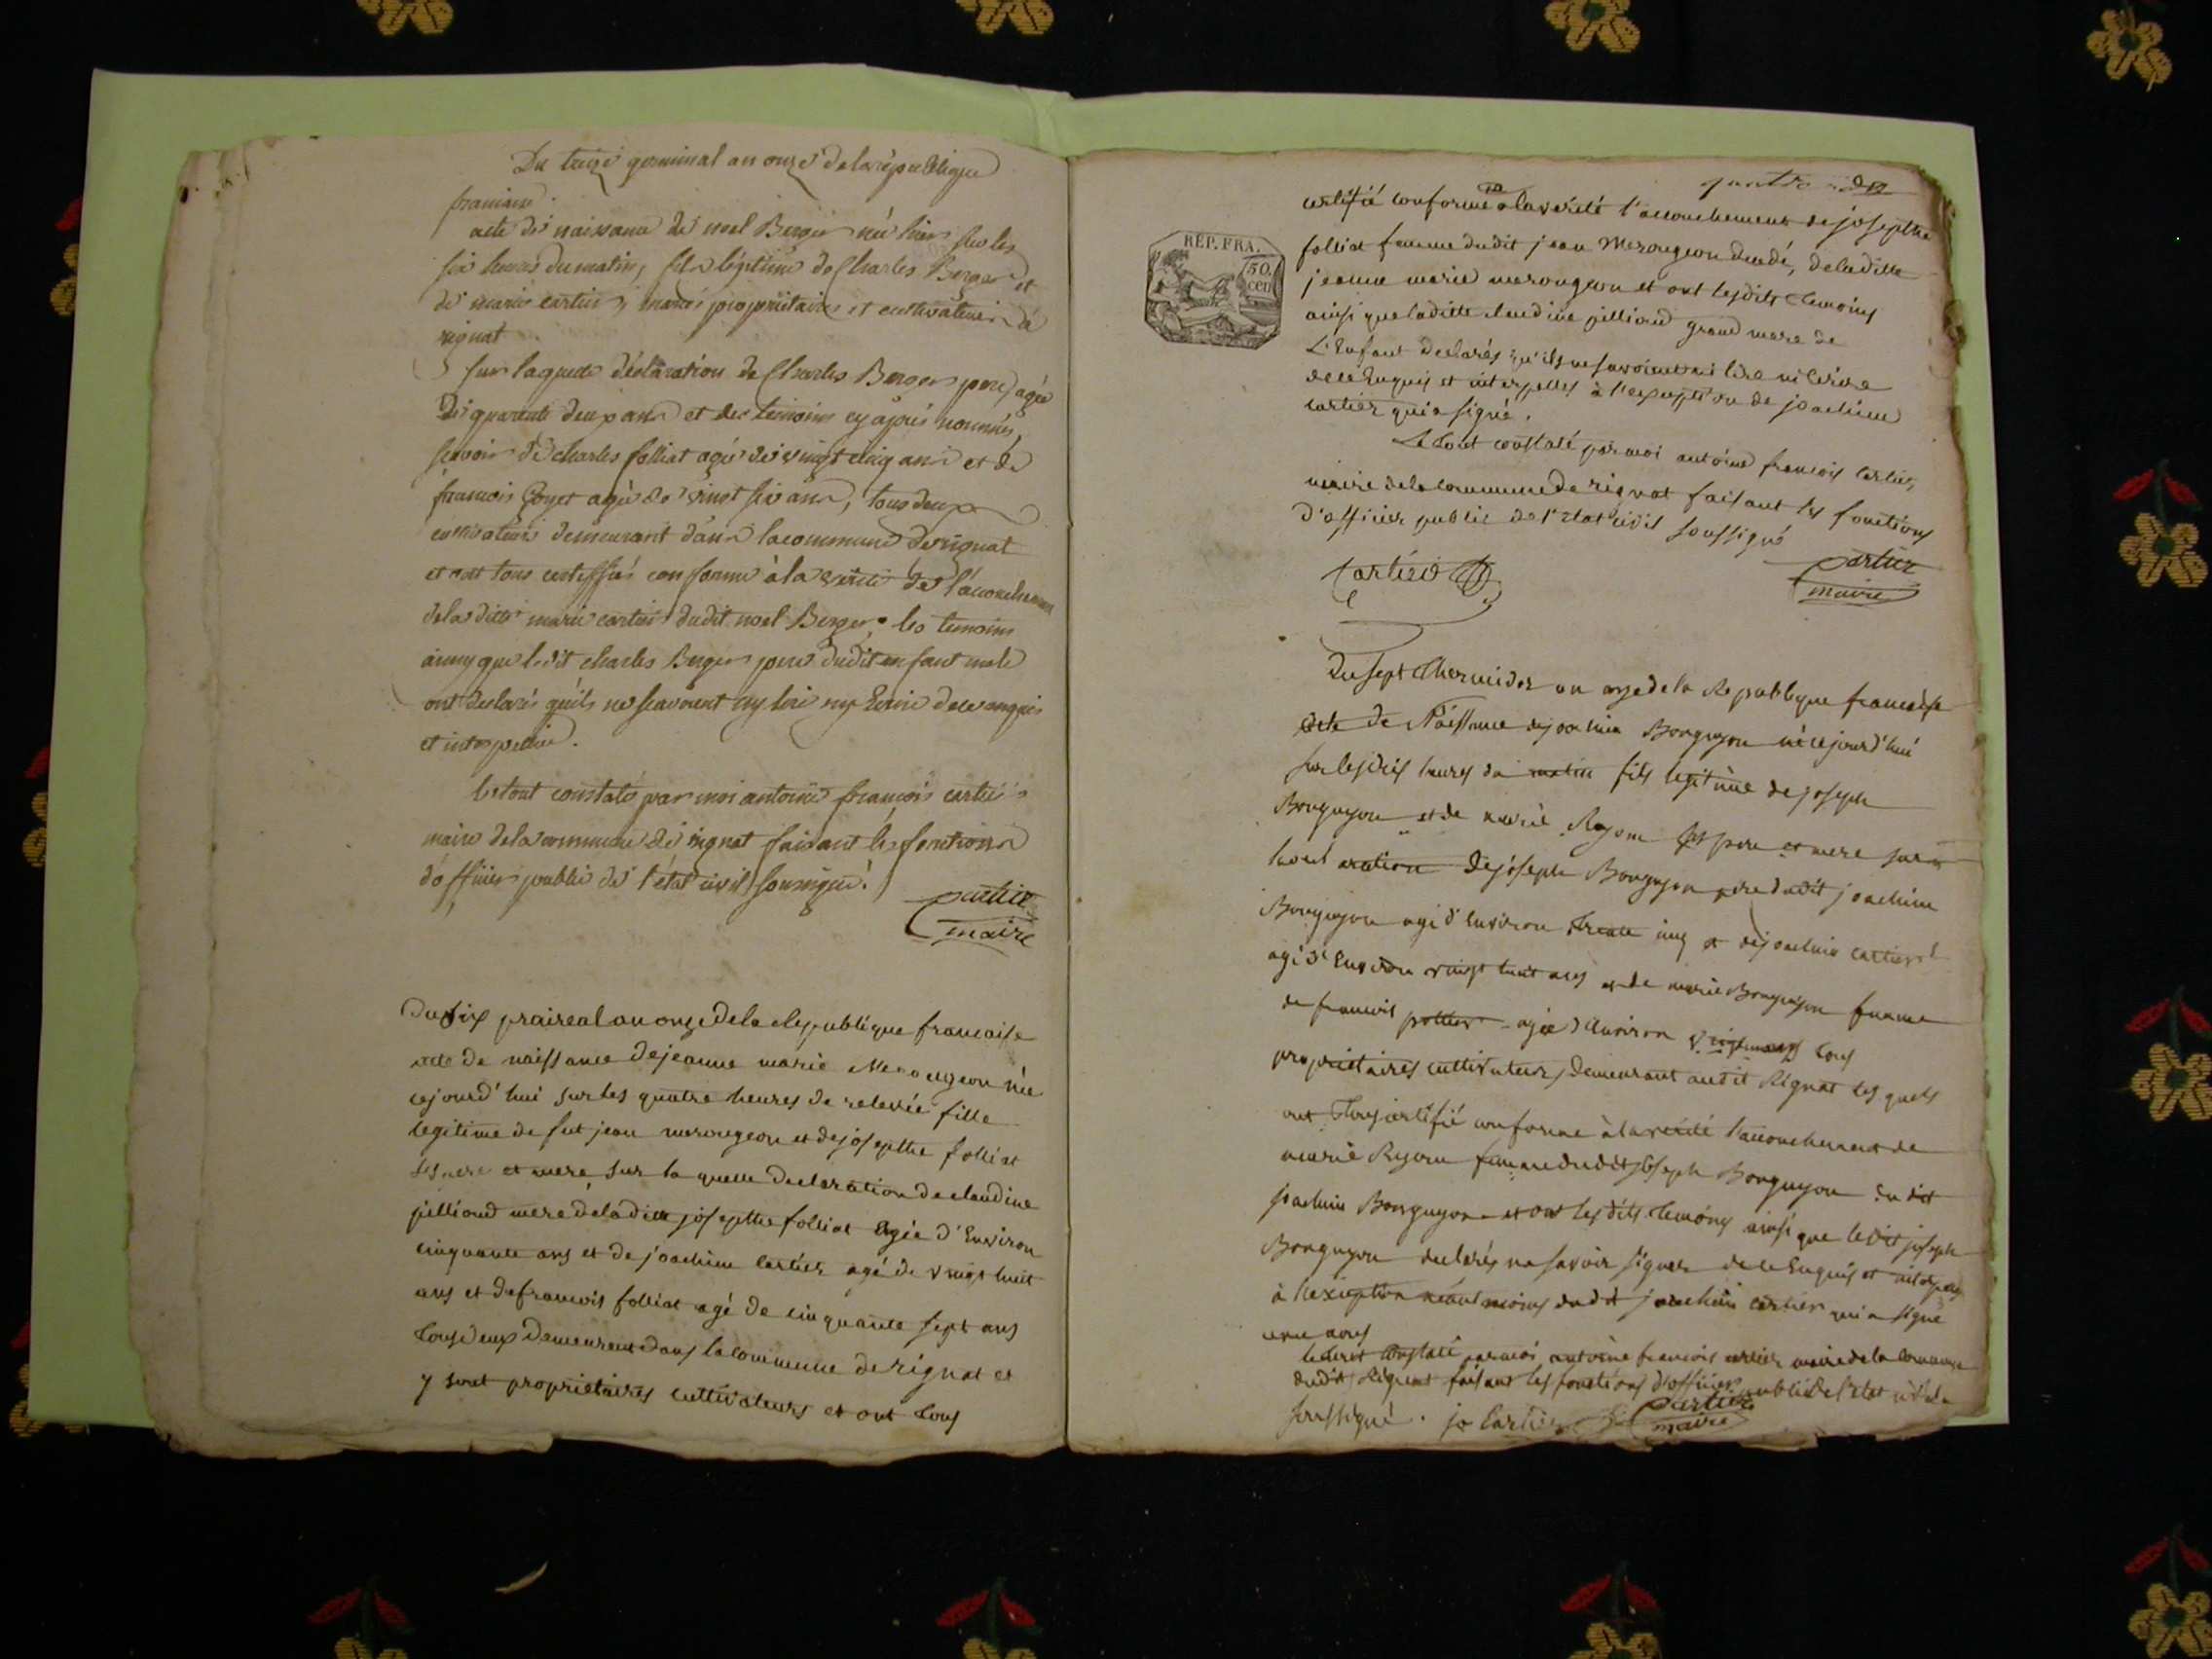 Du treize germinal an onze de la république
francaise
acte de naissance de noel Berger né hier sur les
six heures du matin, fils légitime de Charles Berger et
de marie cartier, mariés propriétaires et cultivateurs à
rignat
sur laquelle déclaration de Charles Berger pere, agée
de quarante deux ans et des temoins cy après nommés,
scavoir de charles folliat agé de vingt cinq ans et de
francois agé de vingt six ans, tous deux
cultivateurs demeurant dans la commune de rignat
et ont tous certiffiés conforme à la verité de l'accouchement
de la ditte marie cartier dudit noel Berger, les temoins
ainsy que ledit charles Berger pere dudit enfant male
ont declarés qu'ils ne scavoient ny lire ny Ecrire de ce enquis
et interpellés.
le tout constaté par moi antoine francois cartier
maire de la commune de rignat faisant les fonctions
d'officier public de l'état civil soussigné.
Cartier
maire
Du six praireal an onze de la Republique francaise
acte de naissance de jeanne marie Merougeon née
cejourd'hui sur les quatre heures de relevée fille
legitime de fut jean merougeon et de josepthe folliat
ses pere et mere, sur la quelle declaration de claudine
pilliaud mere de la ditte josepthe folliat Agée d'Environ
cinquante ans et de joachim Cartier agé de vingt huit
ans et de francois folliat agé de cinquante sept ans
tous deux demeurant dans la commune de rignat et
y sont propriétaires cultivateurs et ont tous
certifié conforme a la verité l'accouchement de josepthe
folliat femme dudit jean Merougeon decedé, de la ditte
REP. FRA.
50.
cen
jeanne marie merougeon et ont lesdits temoins
ainsi que la ditte claudine pilliaud grand mere de
L'Enfant declarés qu'ils ne savoient ni lire ni Ecrire
de ce Enquis et interpellés à l'exception de joachim
cartier qui a signé.
Le tout constaté par moi antoine francois Cartier,
maire de la commune de rignat faisant les fonctions
d'officier public de l'Etat civil soussigné
Cartier
Cartier
maire
Du sept thermidor an onze de la Republique francaise
acte de Naissance de joachim Bourguyon né cejourd'hui
sur les dix heures du matin fils legitime de joseph
Bourguyon et de marie ses pere et mere sur
de joseph Bourguyon pere dudit joachim
Bourguyon agé d'Environ trente cinq et de joachim cartier
agé d'Environ vingt huit ans et de marie Bourguyon femme
de francois agée d'Environ tous
propriétaires cultivateurs demeurant audit Rignat les quels
ont tous certifié conforme à la verité l'accouchement de
marie femme dudit joseph Bourguyon du dit
joachim Bourguyon et ont lesdits temoins ainsi que ledit joseph
Bourguyon declarés ne savoir signer de ce Enquis et interpellés
à l'exception néantmoins dudit joachim cartier qui a signé
avec nous
le tout constaté par moi antoine francois cartier maire de la commune
dudit Rignat faisant les fonctions d'officier public de l'Etat civil
soussigné. jo Cartier
Cartier
maire